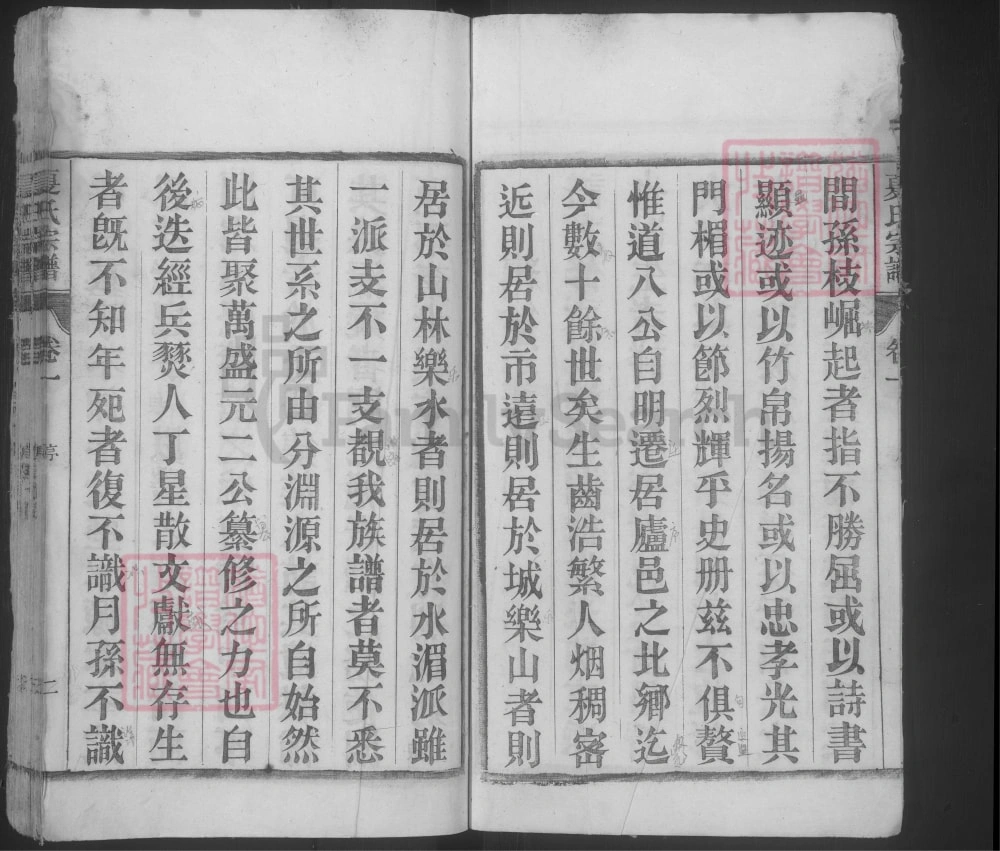 間孫枝崛起者指不勝屈或以詩書
顯迹或以竹帛揚名或以忠孝光其
門楣或以節烈輝乎史册茲不俱贅
惟道八公自明遷居廬邑之北鄉迄
今數十餘世矣生齒浩繁人烟稠密
近則居於市遠則居於城樂山者則
居於山林樂水者則居於水湄派雖
一派支不一支覩我族譜者莫不悉
其世系之所由分淵源之所自始然
此皆聚萬盛元二公纂修之力也自
後迭經兵燹人丁星散文獻無存生
者既不知年死者復不識月孫不識
夏氏宗譜 卷一 二
FamilySearch